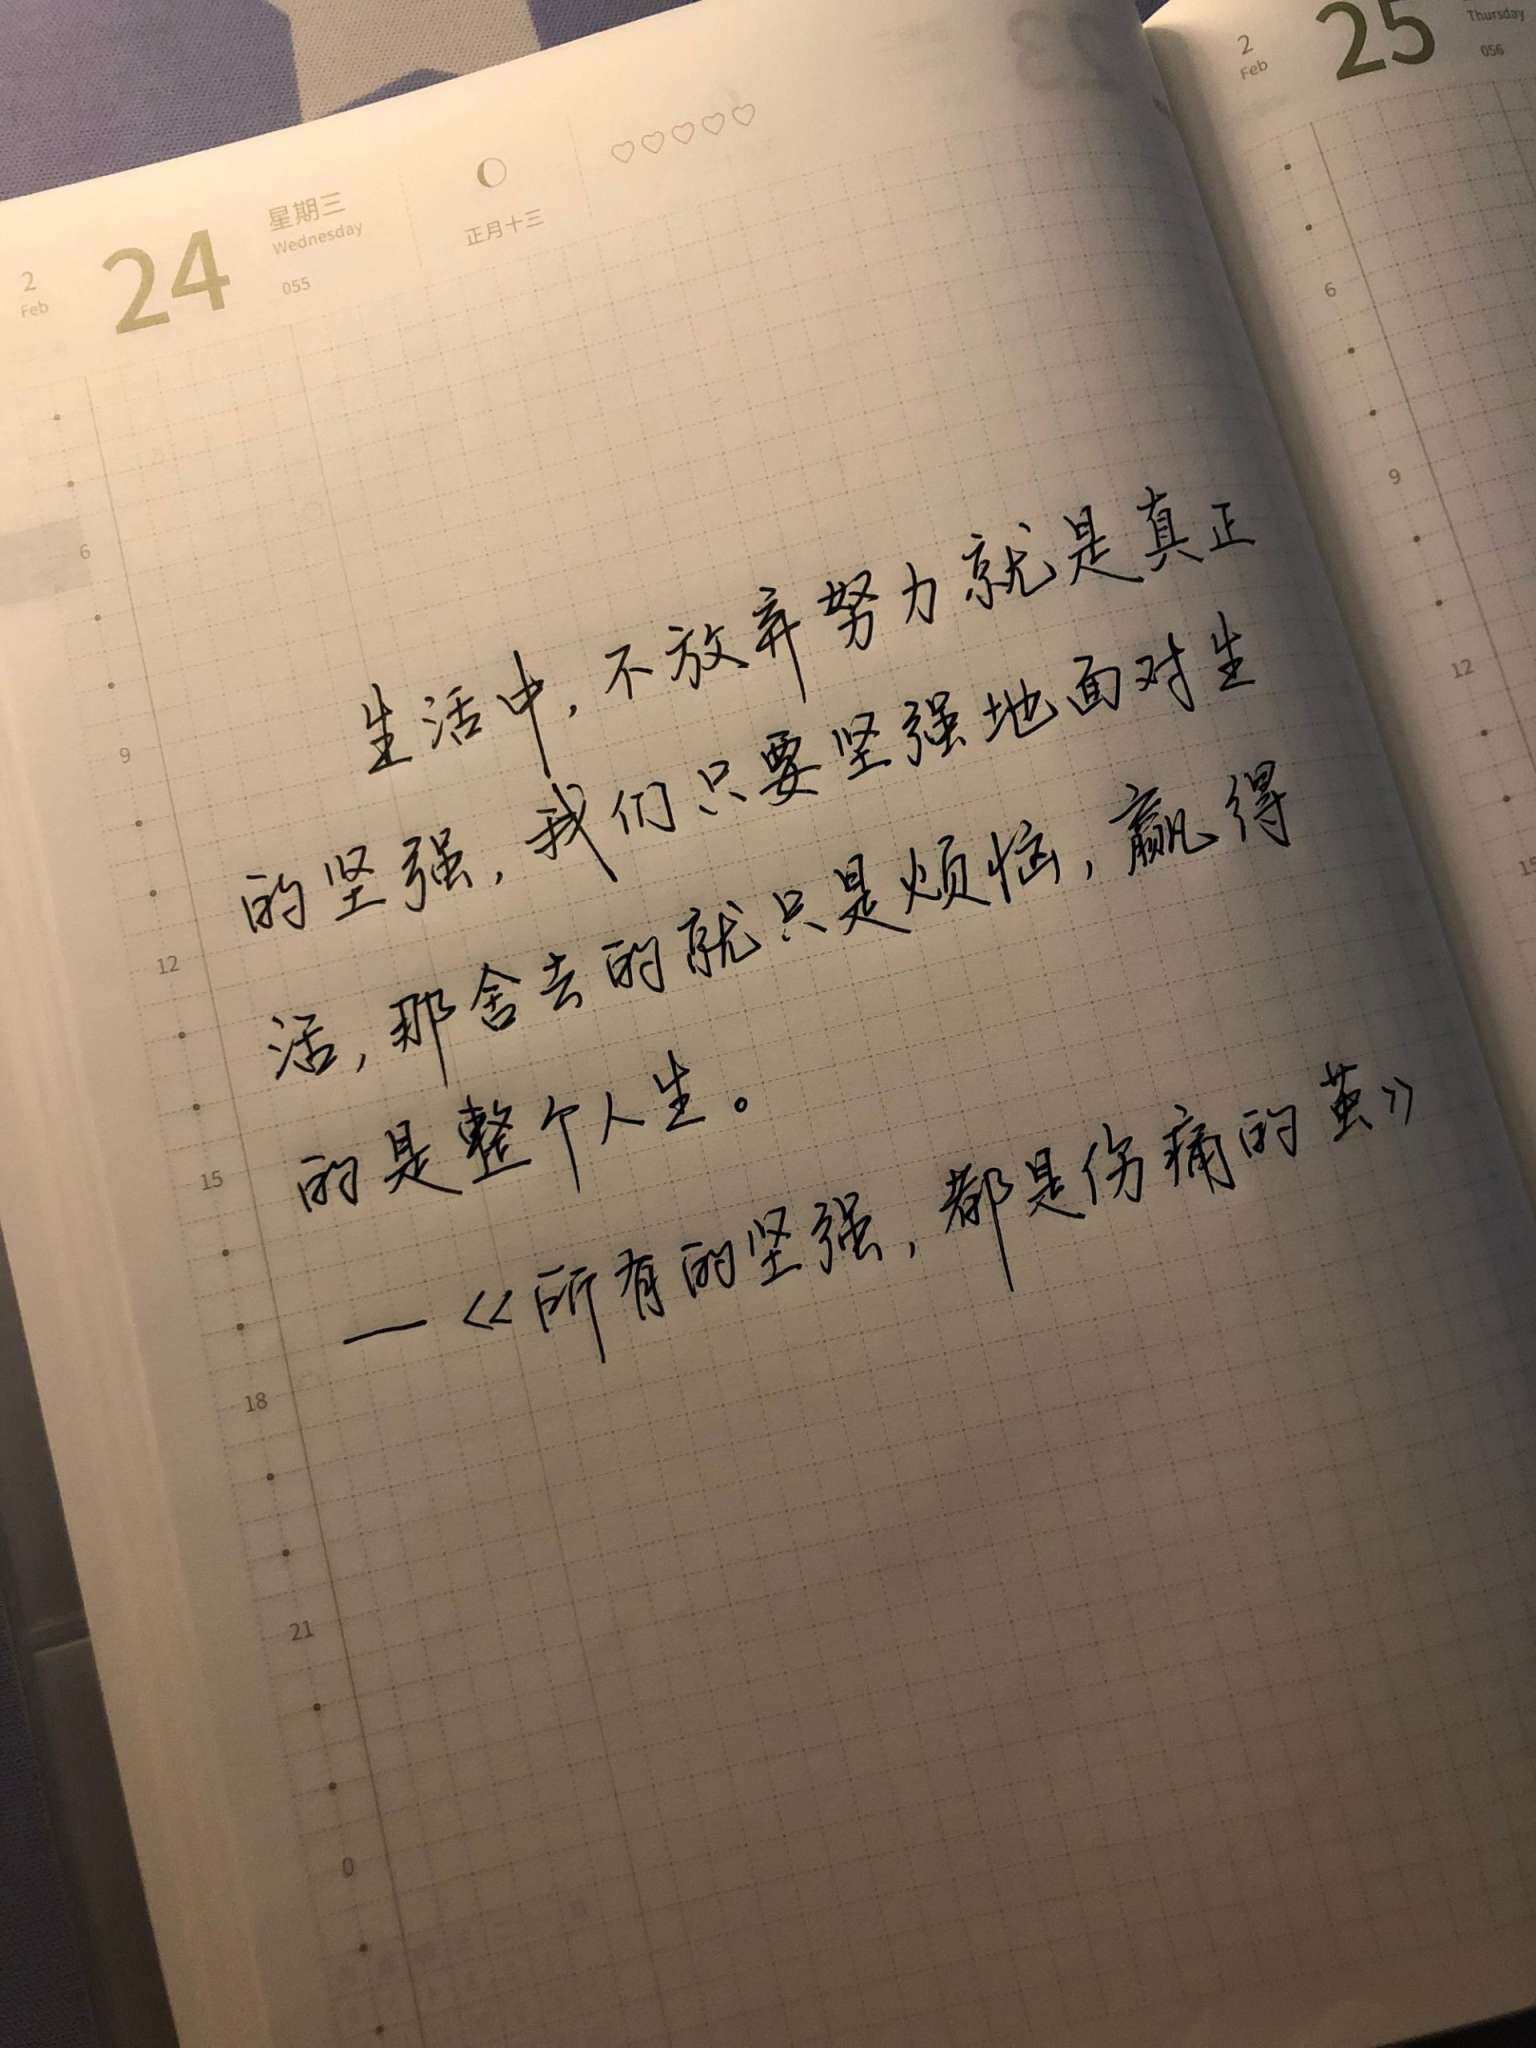 2
Feb
24
星期三
Wednesday
055
正月十三
2
Feb
25
Thursday
056
生活中,不放弃努力就是真正
的坚强,我们只要坚强地面对生
活,那舍去的就只是烦恼,赢得
的是整个人生。
—《所有的坚强,都是伤痛的茧》
6
9
12
15
18
21
0
6
9
12
15